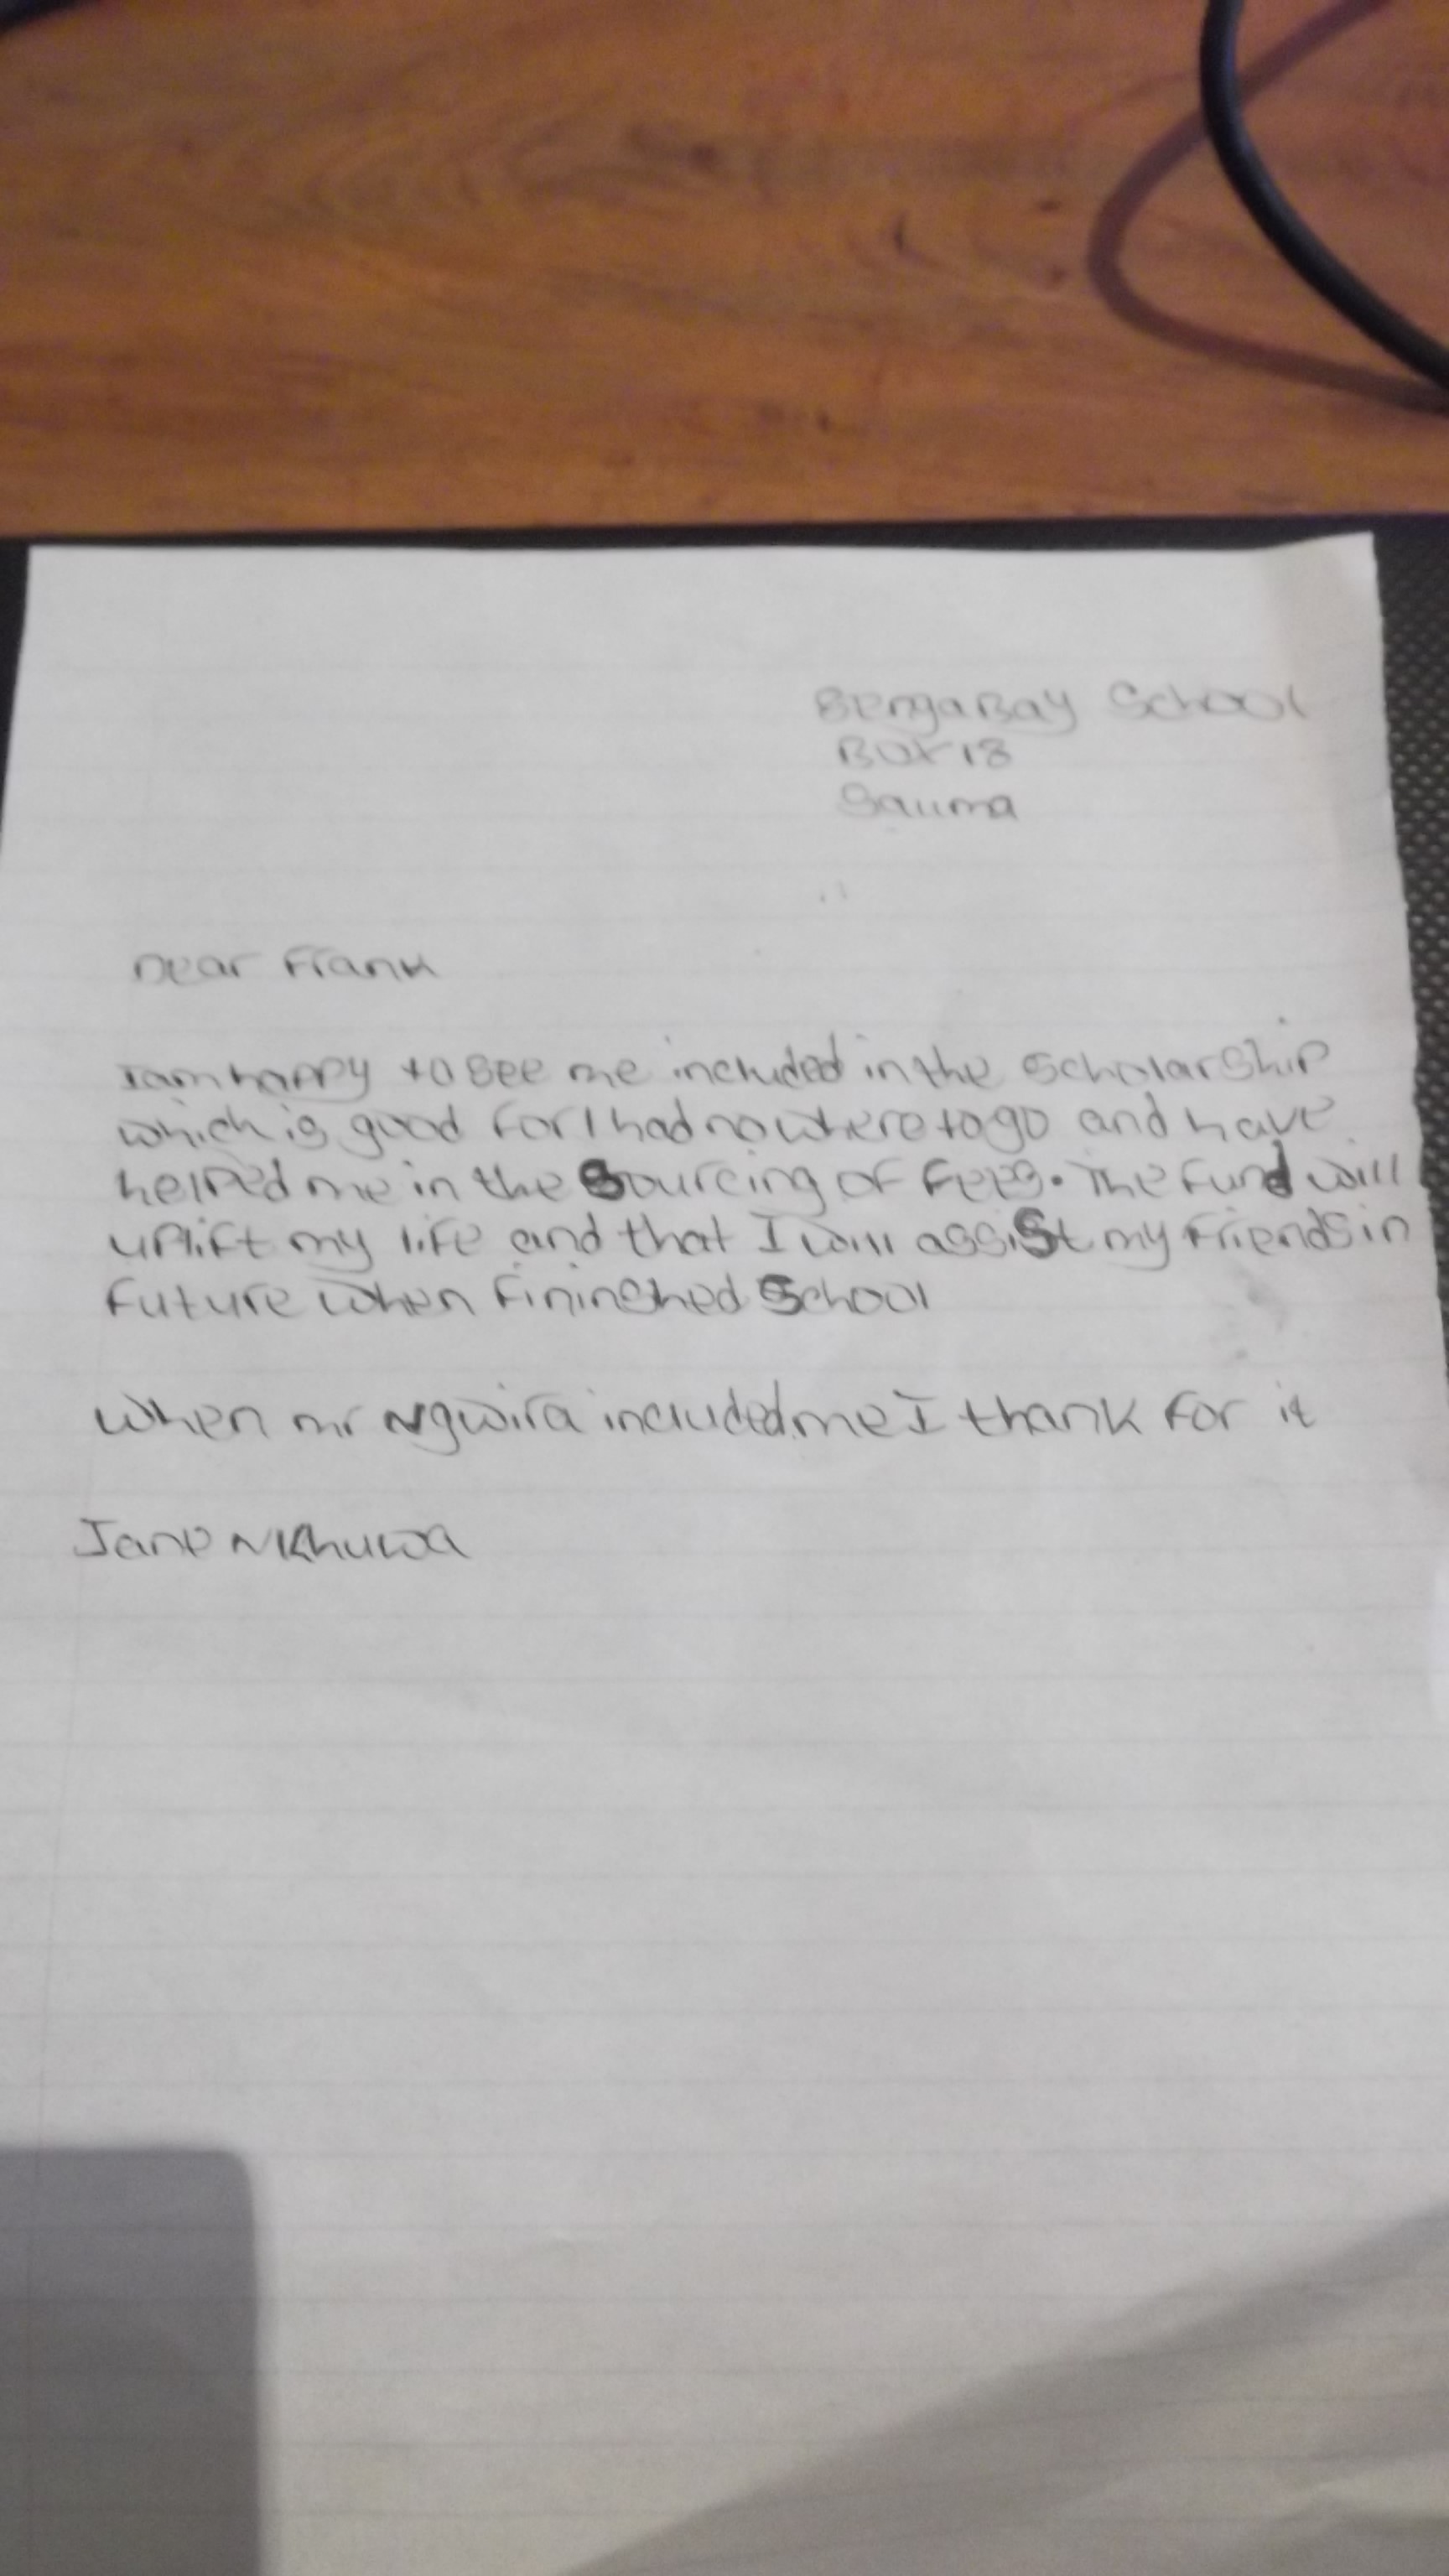 SengaBay School
Box 18
Salima
Dear Frank
I am happy to see me included in the scholarship
which is good for I had no where to go and have
helped me in the Sourcing of fees. The fund will
uplift my life and that I will assist my friends in
future when fininshed School
When mr Ngwira included me I thank for it
Jane Nkhuwa